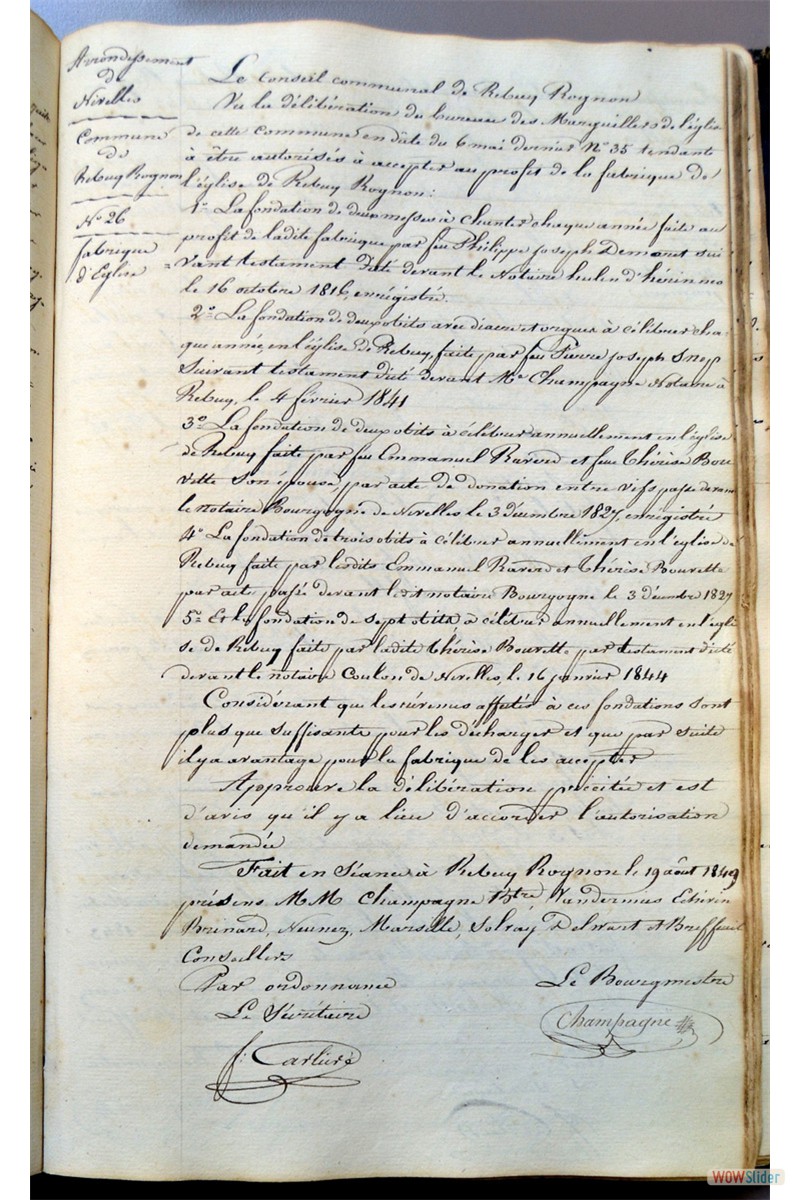 Arrondissement
de
Nivelles
Commune
de
Rebecq Rognon
N° 26
fabrique
d'Eglise
Le conseil communal de Rebecq Rognon
Vu la délibération du bureau des Marguilliers de l'église
de cette commune en date du 6 mai dernier N° 35 tendante
à être autorisés à accepter au profit de la fabrique de
l'église de Rebecq Rognon:
1° La fondation de deux messes à chanter chaque année faite au
profit de ladite fabrique par feu Philippe Joseph Demaret sui
vant testament dicté devant le Notaire d'hérinne
le 16 octobre 1816, enrégistré.
2° La fondation de deux obits avec diacre et orgues à célébrer cha
que année, en l'église de Rebecq, faite par feu Pierre Joseph Snep
suivant testament dicté devant Me Champagne Notaire à
Rebecq, le 4 février 1841
3° La fondation de deux obits à célébrer annuellement en l'église
de Rebecq faite par feu Emmanuel Ravord et feue Thérèse Bou
vette son épouse, par acte de donation entre vifs passé devant
le notaire Bourgogne de Nivelles le 3 décembre 1827, enregistré
4° La fondation de trois obits à célébrer annuellement en l'église de
Rebecq faite par lesdits Emmanuel Ravord et Thérèse Bouvette
par acte passé devant ledit notaire Bourgogne le 3 décembre 1827
5° Et la fondation de sept obits, à célébrer annuellement en l'égli
se de Rebecq faite par ladite Thérèse Bouvette par testament dicté
devant le notaire Coulon de Nivelles, le 16 janvier 1844
Considérant que les révenus affectés à ces fondations sont
plus que suffisants pour les décharger et que par suite
il y a avantage pour la fabrique de les accepter
Approuve la délibération précitée et est
d'avis qu'il y a lieu d'accorder l'autorisation
demandée
Fait en séance à Rebecq Rognon le 19 août 1849
présens MM Champagne Bgtre, Vandermus Echevin
Brinard, Neunez, Marselle, Solray Delwart et Breffeuil
Conseillers
Par ordonnance
Le Sécrétaire
Le Bourgmestre
Champagne
f. Carliere
WOWSlider